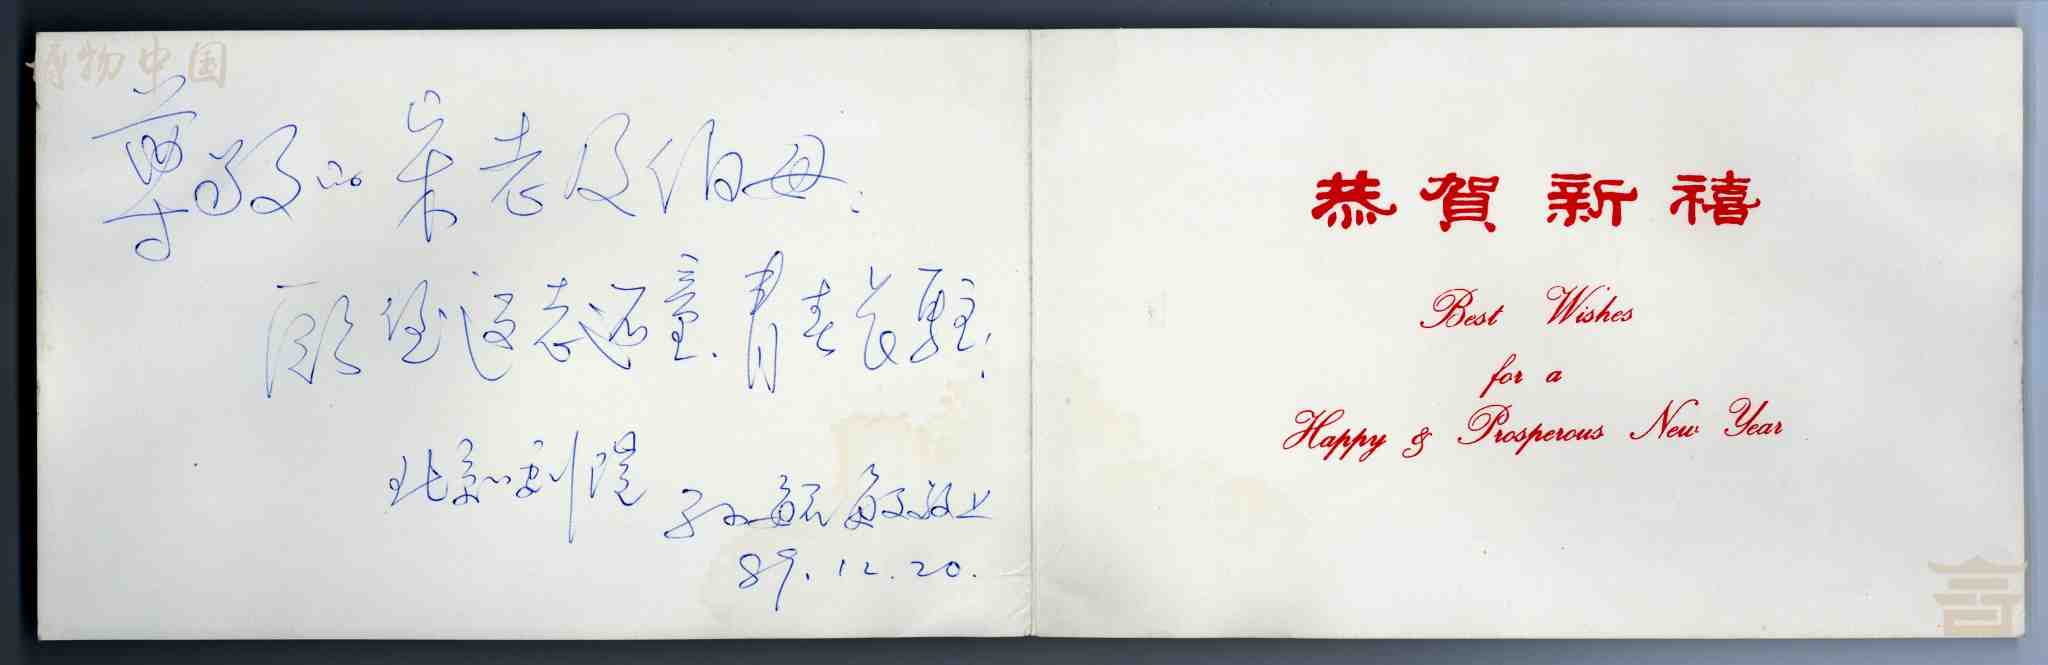 博物中国
尊敬的老及伯母:
愿您返老还童、青春长驻!
北京京剧院 孙毓敏敬上
89.12.20.
恭賀新禧
Best Wishes
for a
Happy & Prosperous New Year